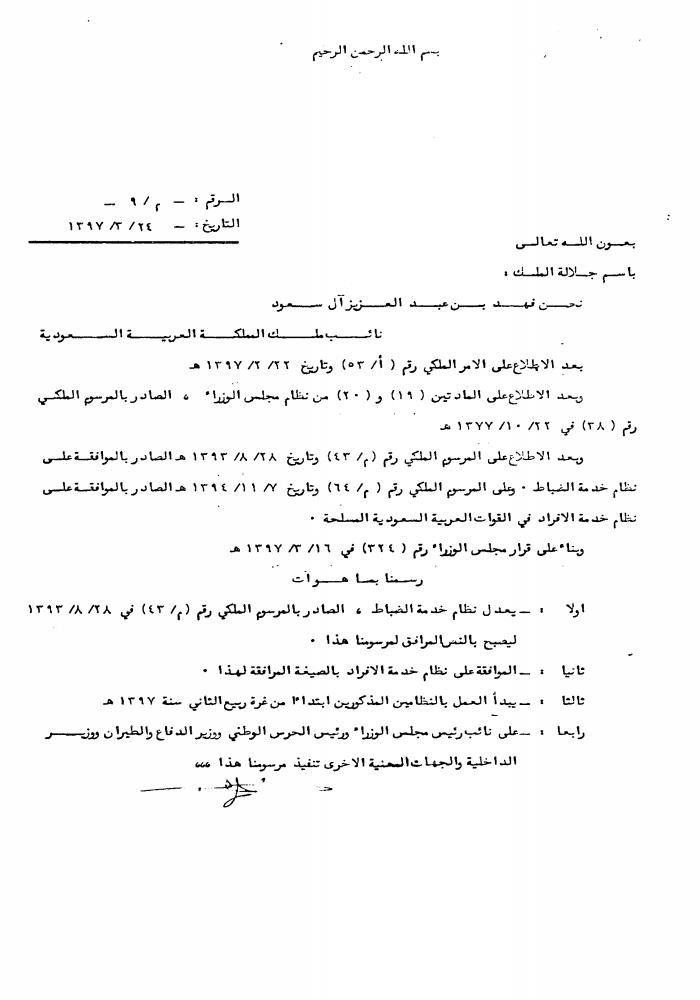 بسم الله الرحمن الرحيم
الرقم : ــ م / ٩ ــ
التاريخ : ــ ٢٤ / ٣ / ١٣٩٧
بعون الله تعالى
باسم جلالة الملك :
نحن فهد بن عبد العزيز آل سعود
نائب ملك المملكة العربية السعودية
بعد الاطلاع على الامر الملكي رقم ( أ / ٥٣ ) وتاريخ ٢٢ / ٢ / ١٣٩٧ هـ
وبعد الاطلاع على المادتين ( ١٩ ) و ( ٢٠ ) من نظام مجلس الوزراء ، الصادر بالمرسوم الملكي
رقم ( ٣٨ ) في ٢٢ / ١٠ / ١٣٧٧ هـ
وبعد الاطلاع على المرسوم الملكي رقم ( م / ٤٣ ) وتاريخ ٢٨ / ٨ / ١٣٩٣ هـ الصادر بالموافقة على
نظام خدمة الضباط . وعلى المرسوم الملكي رقم ( م / ٦٤ ) وتاريخ ٧ / ١١ / ١٣٩٤ هـ الصادر بالموافقة على
نظام خدمة الافراد في القوات العربية السعودية المسلحة .
وبناء على قرار مجلس الوزراء رقم ( ٣٢٤ ) في ١٦ / ٣ / ١٣٩٧ هـ
رسمنا بما هو آت
اولا : ــ يعدل نظام خدمة الضباط ، الصادر بالمرسوم الملكي رقم ( م / ٤٣ ) في ٢٨ / ٨ / ١٣٩٣
ليصبح بالنص المرافق لمرسومنا هذا .
ثانيا : ــ الموافقة على نظام خدمة الافراد بالصيغة المرافقة لهذا .
ثالثا : ــ يبدأ العمل بالنظامين المذكورين ابتداءا من غرة ربيع الثاني سنة ١٣٩٧ هـ
رابعا : ــ على نائب رئيس مجلس الوزراء ورئيس الحرس الوطني ووزير الدفاع والطيران ووزير
الداخلية والجهات المعنية الاخرى تنفيذ مرسومنا هذا ،،،